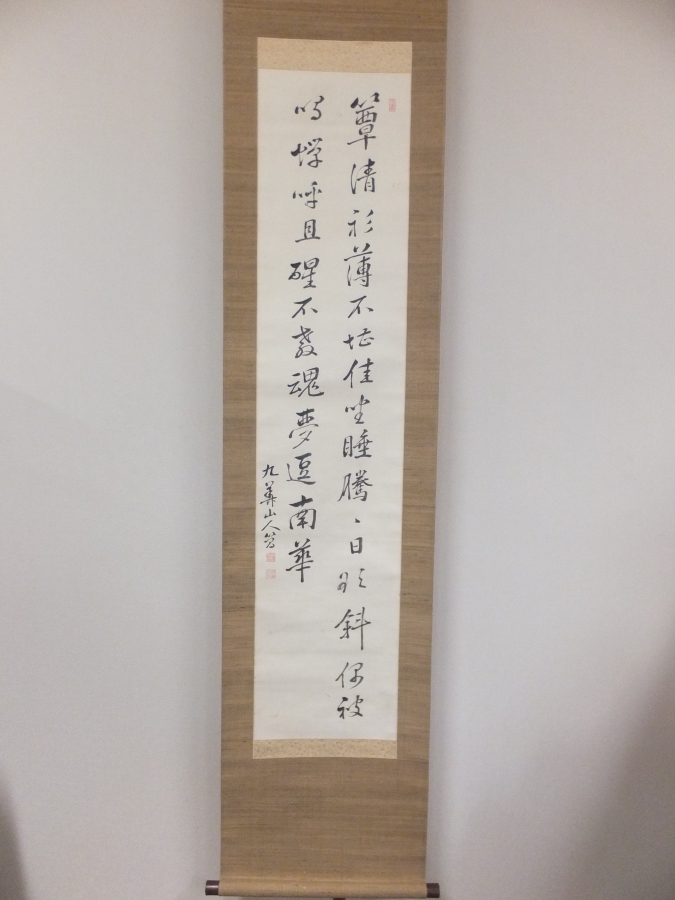 簟清衫薄不堪佳坐睡騰〻日欲斜偶被
鳴蟬呼且醒不教魂夢逗南華
九華山人